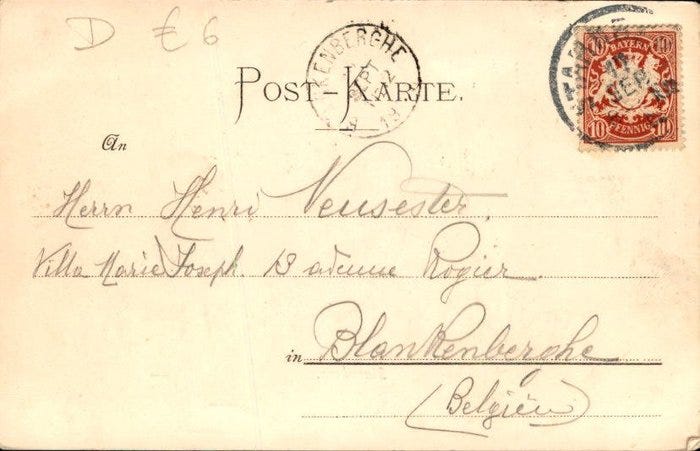 D € 6
BLANKENBERGHE
POST-KARTE.
10 BAYERN 10
10 PFENNIG 10
An
Herrn Henri Neusester,
Villa Marie Joseph. 13 avenue Rogier.
in Blankenberghe
(Belgien)